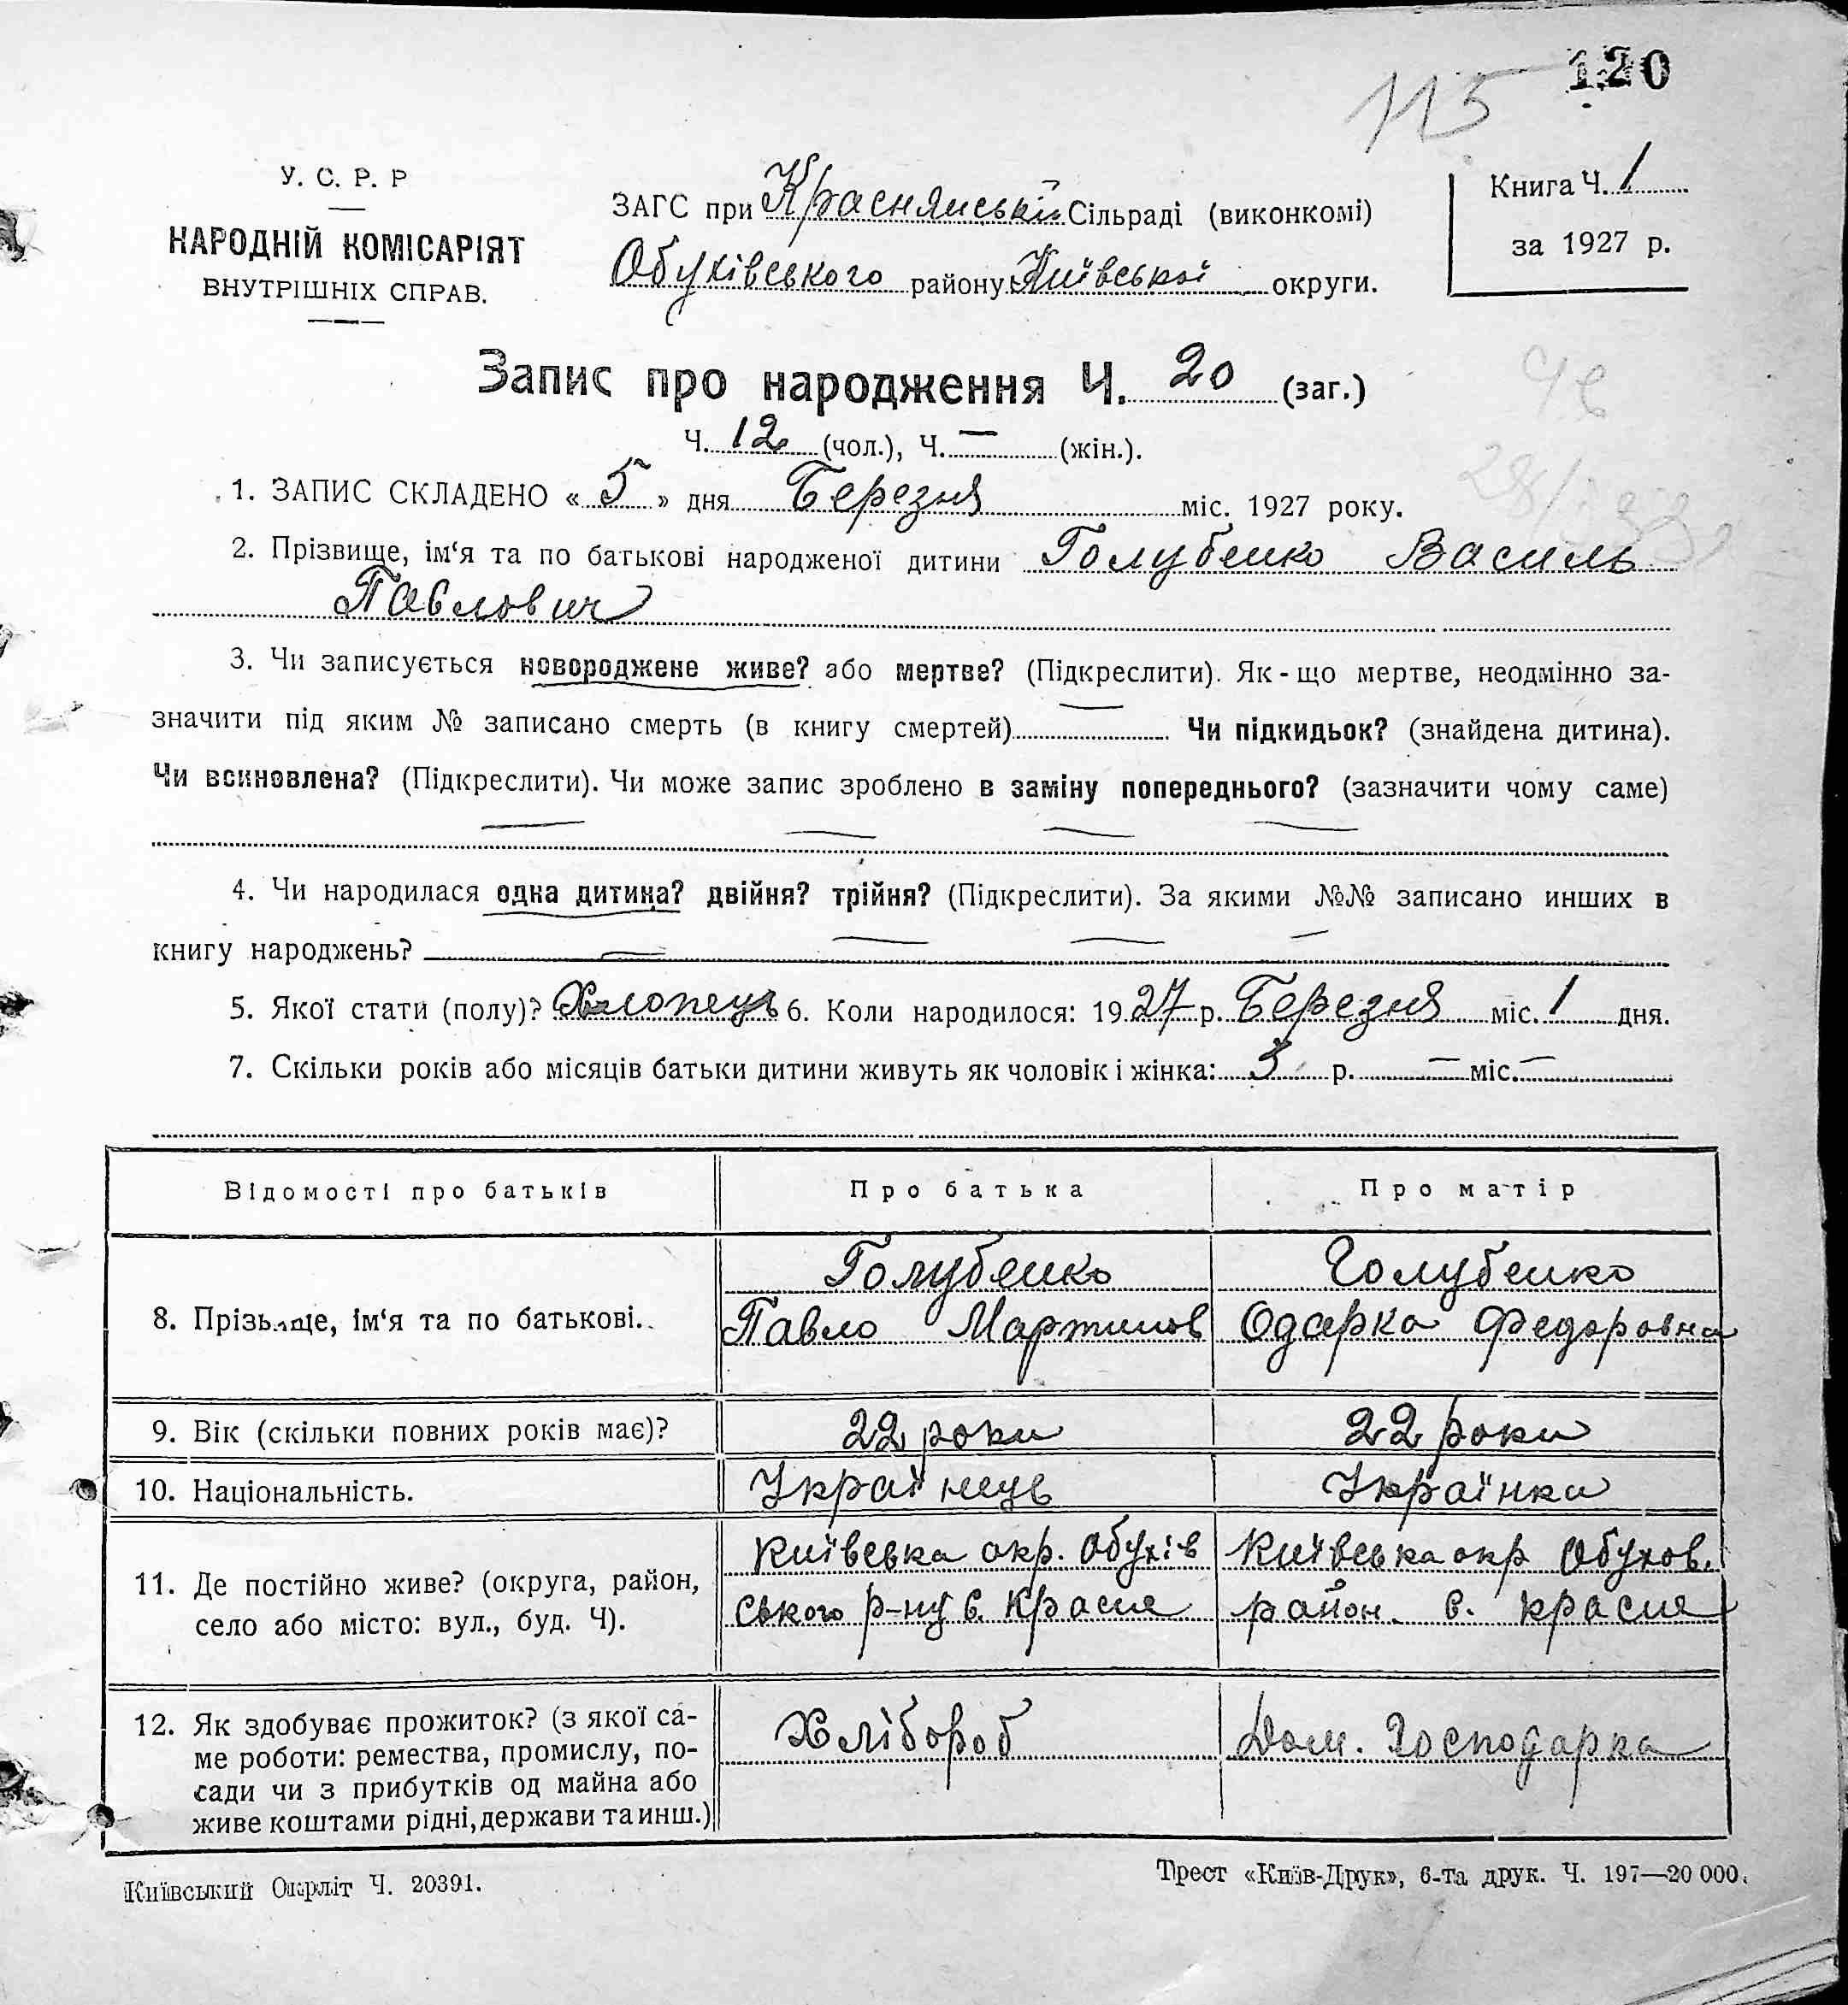 120
115
У. С. Р. Р
НАРОДНІЙ КОМІСАРІЯТ
ВНУТРІШНІХ СПРАВ.
ЗАГС при Краснянській Сільраді (виконкомі)
Обухівського району Київської округи.
Книга Ч. 1
за 1927 р.
Запис про народження Ч. 20 (заг.)
Ч. 12 (чол.), Ч. — (жін.).
1. ЗАПИС СКЛАДЕНО « 5 » дня Березня міс. 1927 року.
2. Прізвище, ім‘я та по батькові народженої дитини Голубенко Василь
Павлович
3. Чи записується новороджене живе? або мертве? (Підкреслити). Як-що мертве, неодмінно за-
значити під яким № записано смерть (в книгу смертей) — Чи підкидьок? (знайдена дитина).
Чи всиновлена? (Підкреслити). Чи може запис зроблено в заміну попереднього? (зазначити чому саме)
— — — —
4. Чи народилася одна дитина? двійня? трійня? (Підкреслити). За якими №№ записано инших в
книгу народжень? — — — —
5. Якої стати (полу)? Хлопець 6. Коли народилося: 1927 р. Березня міс. 1 дня.
7. Скільки років або місяців батьки дитини живуть як чоловік і жінка: 3 р. — міс. —
Відомості про батьків Про батька Про матір
8. Прізвище, ім‘я та по батькові. Голубенко Голубенко
Павло Мартинов Одарка Федоровна
9. Вік (скільки повних років має)? 22 роки 22 роки
10. Національність. Українець Українка
11. Де постійно живе? (округа, район, Київська окр. Обухів Київська окр Обухов.
село або місто: вул., буд. Ч). ського р-ну с. Красне район. с. Красне
12. Як здобуває прожиток? (з якої са- Хлібороб Дом. Господарка
ме роботи: ремества, промислу, по-
сади чи з прибутків од майна або
живе коштами рідні, держави та инш.)
Київський Окрліт Ч. 20391.
Трест «Київ-Друк», 6-та друк. Ч. 197—20 000.